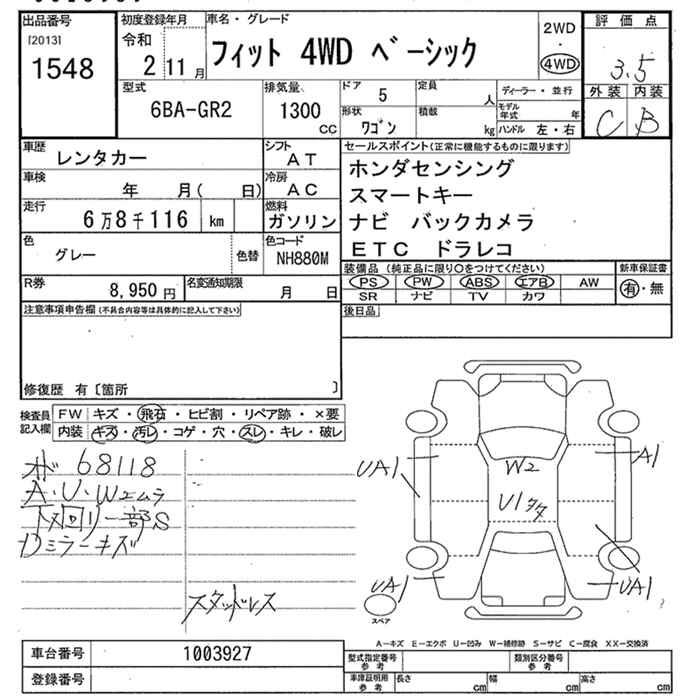 出品番号
[2013]
1548
初度登録年月
令和
2 11月
車名・グレード
フィット 4WD ベーシック
2WD
・
4WD
評価点
3.5
外装 内装
C B
型式
6BA-GR2
排気量
1300
CC
ドア
5
形状
ワゴン
定員
人
積載
kg
ディーラー・並行
モデル年式 年
ハンドル 左・右
車歴
レンタカー
シフト
AT
車検
年 月( 日)
冷房
AC
走行
6万8千116 km
燃料
ガソリン
色
グレー
色替
色コード
NH880M
セールスポイント(正常に機能するものに限ります)
ホンダセンシング
スマートキー
ナビ バックカメラ
ETC ドラレコ
R券
8,950円
名変通知期限
月 日
装備品(純正品に限り○をつけてください)
PS PW ABS エアB AW
SR ナビ TV カワ
新車保証書
有・無
注意事項申告欄(不具合内容等は具体的に記入して下さい)
後日品
修復歴 有〔箇所 〕
検査員
記入欄
FW キズ・飛石・ヒビ割・リペア跡・×要
内装 キズ・汚レ・コゲ・穴・スレ・キレ・破レ
オド 68118
A.U.W2ムラ
下回り一部S
Dミラーキズ
スタッドレス
UA1
W2
U1タタ
A1
UA1
UA1
スペア
A−キズ E−エクボ U−凹み W−補修跡 S−サビ C−腐食 XX−交換済
車台番号
1003927
登録番号
型式指定番号
参考
類別区分番号
参考
車庫証明用
参考
長さ cm
幅 cm
高さ cm